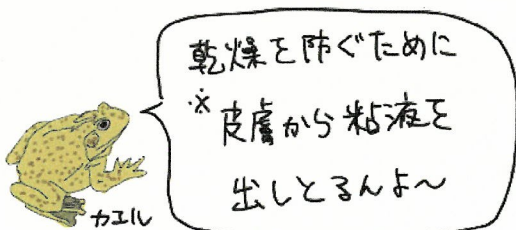 乾燥を防ぐために
※皮膚から粘液を
出しとるんよ〜
カエル